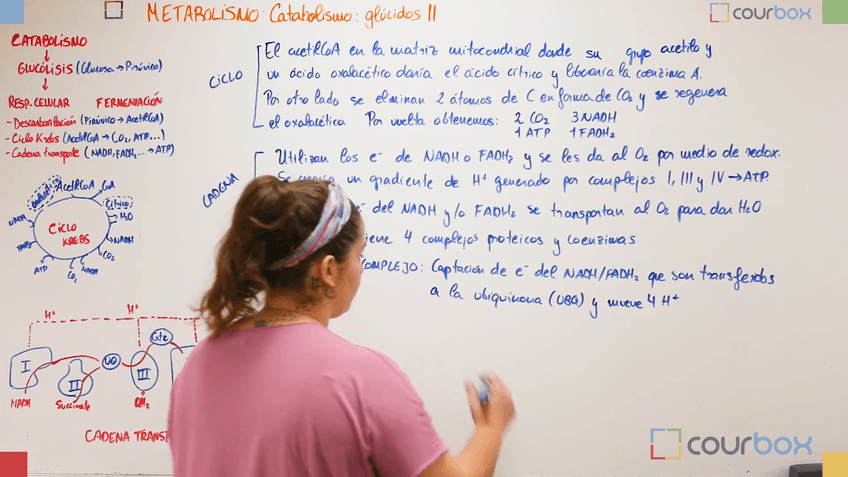 METABOLISMO: Catabolismo: glúcidos II
courbox
CATABOLISMO
GLUCÓLISIS (Glucosa → Pirúvico)
RESP. CELULAR FERMENTACIÓN
- Descarboxilación (Pirúvico → AcetilCoA)
- Ciclo Krebs (AcetilCoA → CO2, ATP...)
- Cadena transporte (NADH, FADH2... → ATP)
AcetilCoA CoA
Cítrico
H2O
NADH
CICLO
KREBS
NADH
CO2
ATP
CO2
NADH
H+ H+
I
UQ
Citc
II
III
NADH
Succinato
CADENA TRANS
CICLO
El acetilCoA en la matriz mitocondrial donde su grupo acetilo y
un ácido oxalacético daría el ácido cítrico y liberaría la coenzima A.
Por otro lado se eliminan 2 átomos de C en forma de CO2 y se regenera
el oxalacético. Por vuelta obtenemos: 2 CO2 3 NADH
1 ATP 1 FADH2
CADENA
Utilizan los e- de NADH o FADH2 y se les da al O2 por medio de redox.
un gradiente de H+ generado por complejos I, III y IV → ATP.
del NADH y/o FADH2 se transportan al O2 para dar H2O
iene 4 complejos proteicos y coenzimas
OMPLEJO: Captación de e- del NADH/FADH2 que son transferidos
a la ubiquinona (UBQ) y mueve 4 H+
courbox